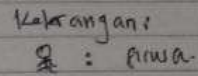 Keterangan:
: siswa